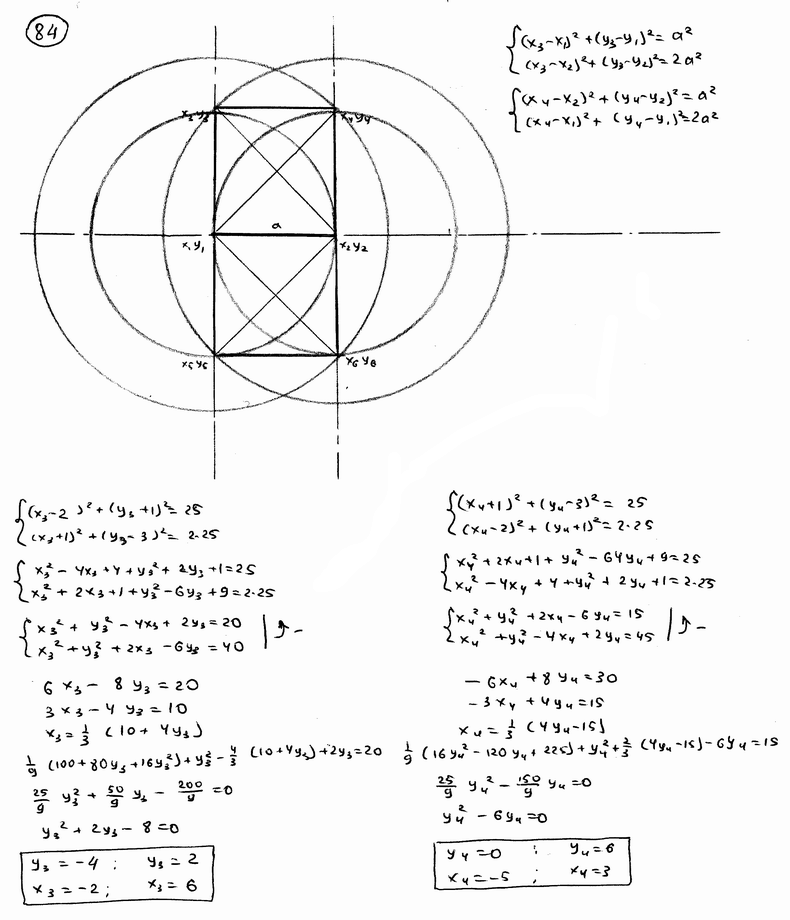 84
(x₃-x₁)² + (y₃-y₁)² = a²
(x₃-x₂)² + (y₃-y₂)² = 2a²
(x₄-x₂)² + (y₄-y₂)² = a²
(x₄-x₁)² + (y₄-y₁)² = 2a²
x₃y₃
x₄y₄
a
x₁y₁
x₂y₂
x₅y₅
x₆y₆
(x₃-2)² + (y₃+1)² = 25
(x₃+1)² + (y₃-3)² = 2·25
x₃² - 4x₃ + 4 + y₃² + 2y₃ + 1 = 25
x₃² + 2x₃ + 1 + y₃² - 6y₃ + 9 = 2·25
x₃² + y₃² - 4x₃ + 2y₃ = 20
x₃² + y₃² + 2x₃ - 6y₃ = 40 | ↑ -
6x₃ - 8y₃ = 20
3x₃ - 4y₃ = 10
x₃ = 1/3 (10 + 4y₃)
1/9 (100 + 80y₃ + 16y₃²) + y₃² - 4/3 (10 + 4y₃) + 2y₃ = 20
25/9 y₃² + 50/9 y₃ - 200/9 = 0
y₃² + 2y₃ - 8 = 0
y₃ = -4 ; y₃ = 2
x₃ = -2 ; x₃ = 6
(x₄+1)² + (y₄-3)² = 25
(x₄-2)² + (y₄+1)² = 2·25
x₄² + 2x₄ + 1 + y₄² - 64y₄ + 9 = 25
x₄² - 4x₄ + 4 + y₄² + 2y₄ + 1 = 2·25
x₄² + y₄² + 2x₄ - 6y₄ = 15
x₄² + y₄² - 4x₄ + 2y₄ = 45 | ↑ -
-6x₄ + 8y₄ = 30
-3x₄ + 4y₄ = 15
x₄ = 1/3 (4y₄ - 15)
1/9 (16y₄² - 120y₄ + 225) + y₄² + 2/3 (4y₄ - 15) - 6y₄ = 15
25/9 y₄² - 150/9 y₄ = 0
y₄² - 6y₄ = 0
y₄ = 0 ; y₄ = 6
x₄ = -5 ; x₄ = 3